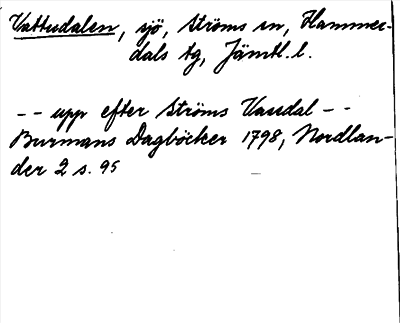 Vattudalen, sjö, Ströms sn, Hammer-
dals tg, Jämtl. l.
-- upp efter Ströms Vaudal --
Burmans Dagböcker 1798, Nordlan-
der 2 s. 95